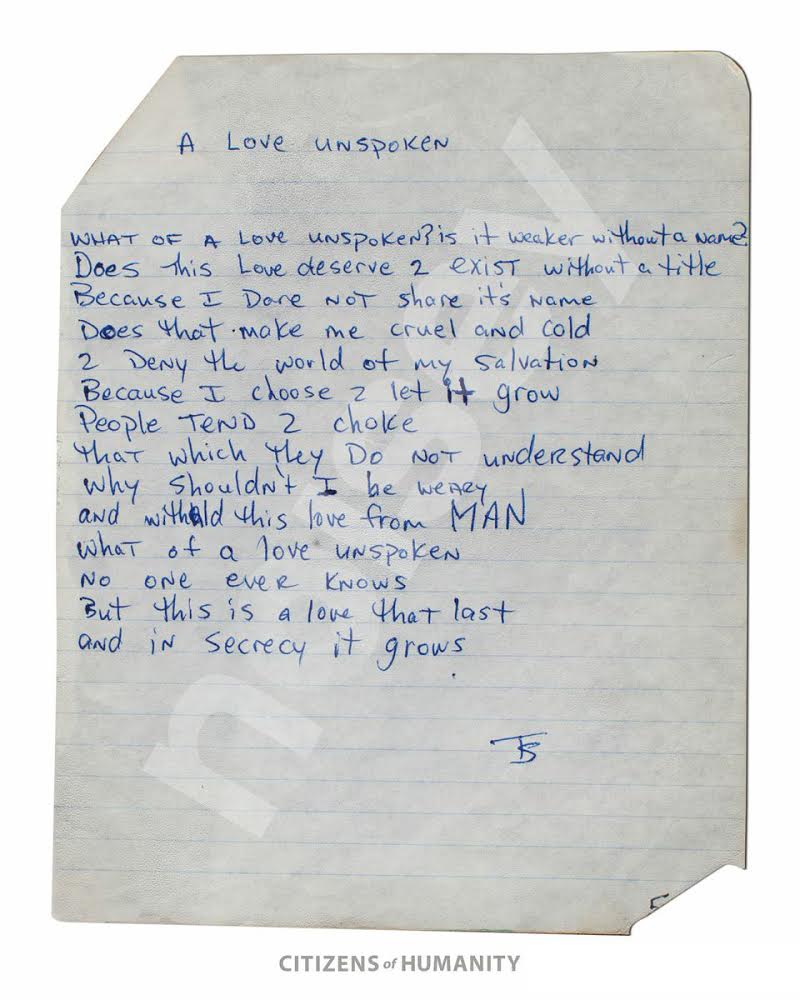 A Love unspoken
WHAT OF A Love unspoken? is it weaker without a name?
Does this Love deserve 2 exist without a title
Because I Dare not share it's name
Does that make me cruel and cold
2 Deny the world of my salvation
Because I choose 2 let it grow
People TEND 2 choke
that which they Do not understand
why shouldn't I be weary
and withold this love from MAN
what of a love unspoken
no one ever knows
But this is a love that last
and in secrecy it grows
TS
noisey
CITIZENS of HUMANITY